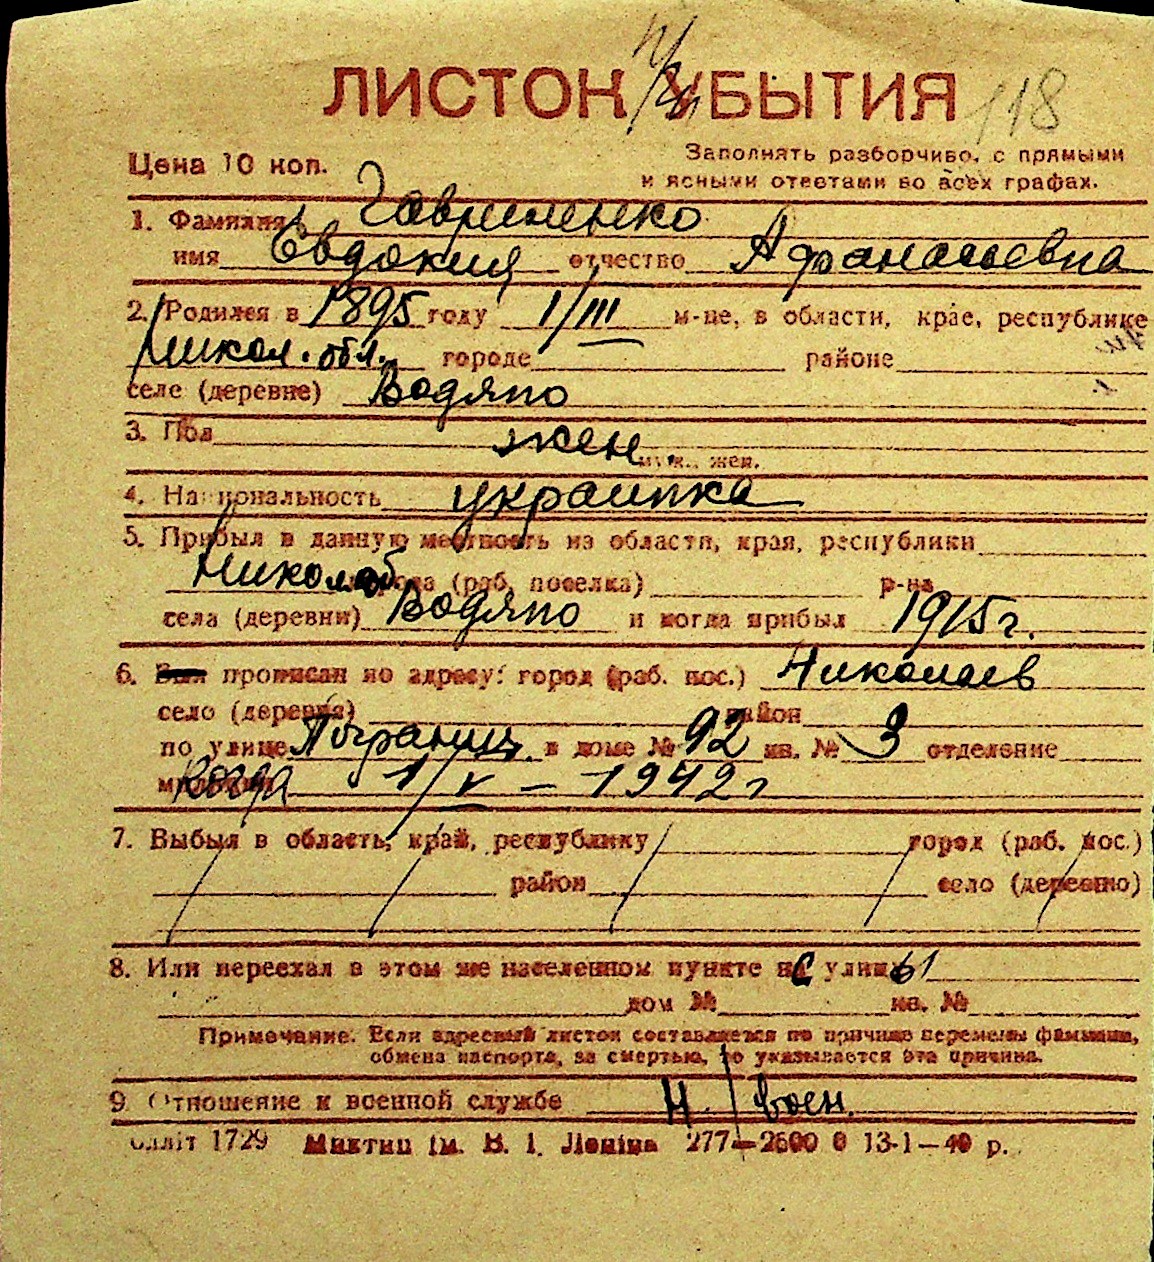 ЛИСТОК УБЫТИЯ 118
Цена 10 коп.
Заполнять разборчиво, с прямыми
и ясными ответами во всех графах.
1. Фамилия Гавриленко
имя Евдокия отчество Афанасьевна
2. Родился в 1895 году 1/III м-це, в области, крае, республике
Никол. обл. городе районе
селе (деревне) Водяно
3. Пол жен
муж., жен.
4. Национальность украинка
5. Прибыл в данную местность из области, края, республики
Никол об города (раб. поселка) р-на
села (деревни) Водяно и когда прибыл 1915 г.
6. Был прописан по адресу: город (раб. пос.) Николаев
село (деревня) район
по улице Погранич. в доме № 92 кв. № 3 отделение
милиции когда 1/V – 1942 г
7. Выбыл в область, край, республику город (раб. пос.)
район село (деревню)
8. Или переехал в этом же населенном пункте на улицу 61
дом № кв. №
Примечание. Если адресный листок составляется по причине перемены фамилии,
обмена паспорта, за смертью, то указывается эта причина.
9. Отношение к военной службе Н/воен.
олліт 1729 Миктип ім. В. І. Леніна 277—2600 0 13-1—40 р.